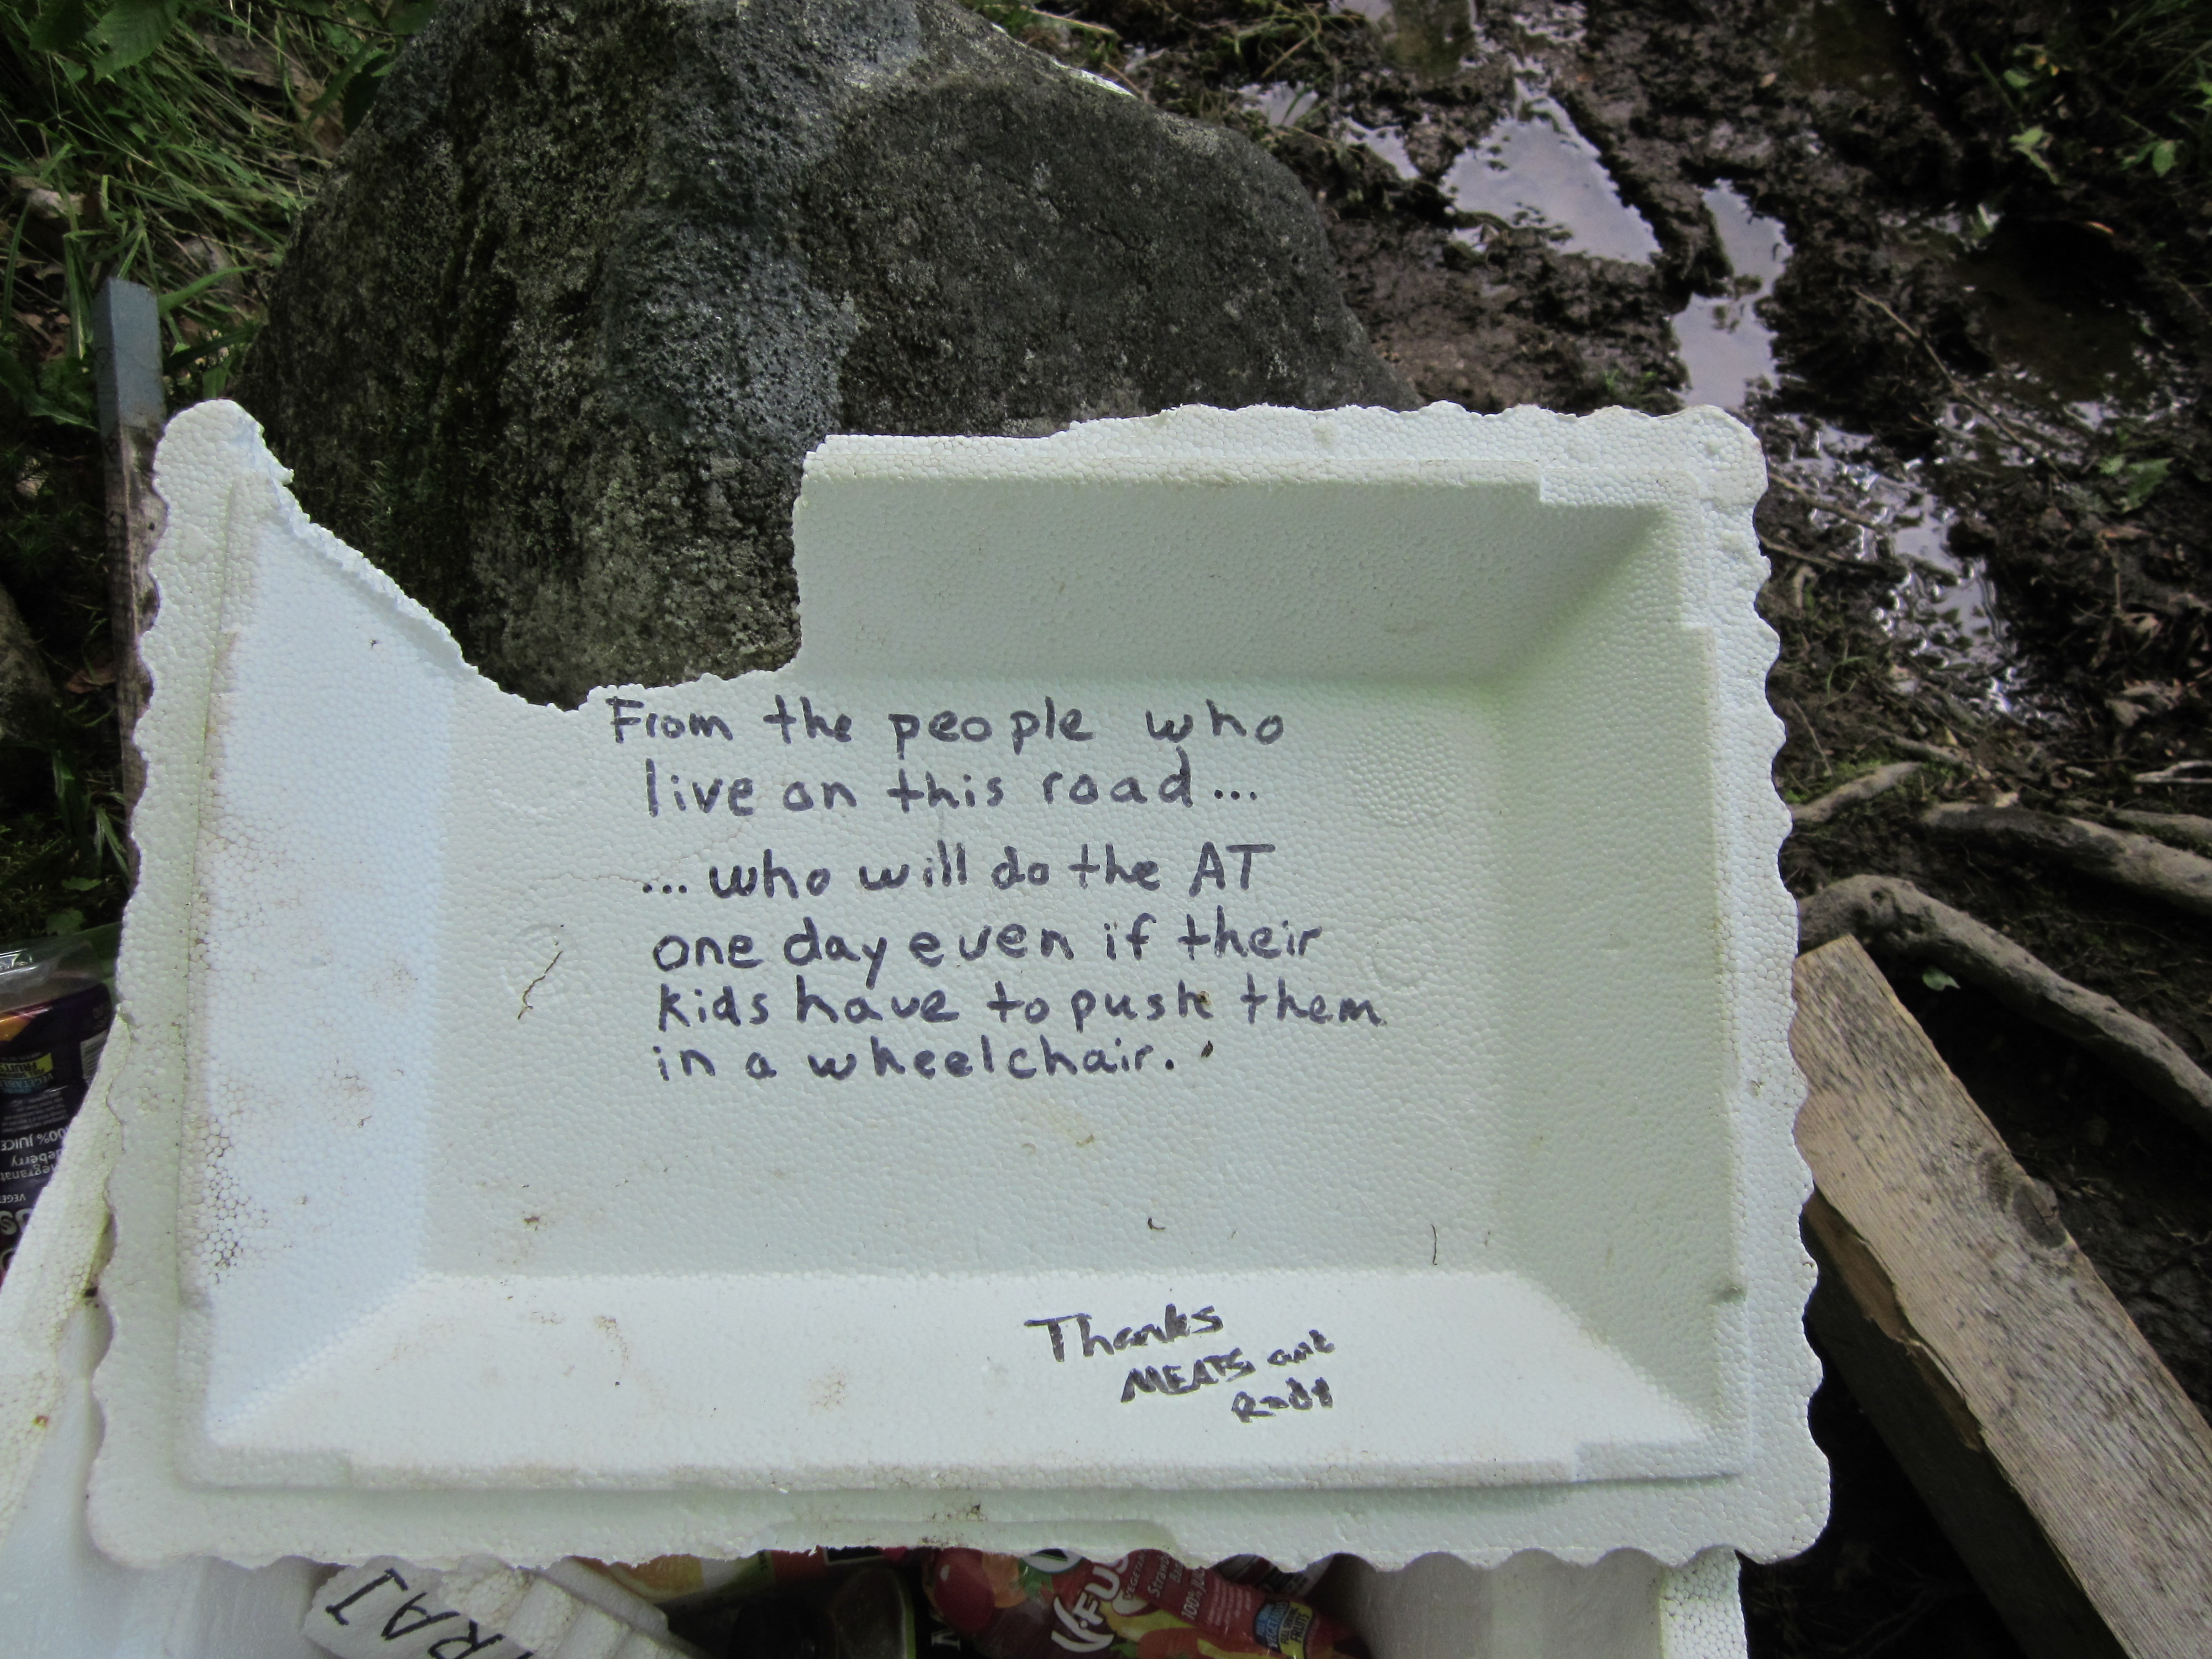 From the people who
live on this road...
...who will do the AT
one day even if their
kids have to push them
in a wheelchair.
Thanks
MEATS
TRAI
V-FUS
100% JUICE
VEGETABLES
FRUITS